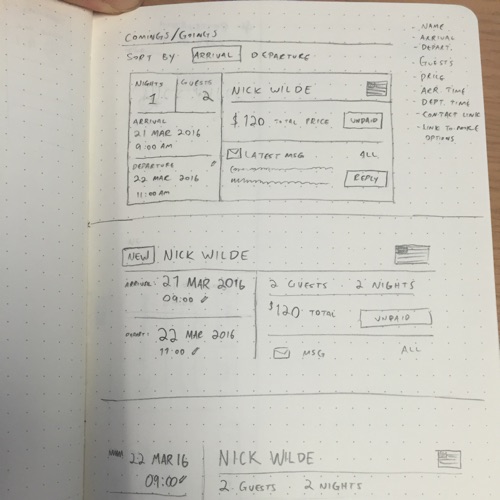 COMINGS/GOINGS
SORT BY: ARRIVAL DEPARTURE
NIGHTS GUESTS
1 2
ARRIVAL
21 MAR 2016
9:00 AM
DEPARTURE
22 MAR 2016
11:00 AM
NICK WILDE
$120 TOTAL PRICE UNPAID
LATEST MSG ALL
REPLY
- NAME
- ARRIVAL
- DEPART.
- GUESTS
- PRICE
- ARR. TIME
- DEPT. TIME
- CONTACT LINK
- LINK TO MORE
OPTIONS
NEW NICK WILDE
ARRIVAL: 21 MAR 2016
09:00
DEPART: 22 MAR 2016
11:00
2 GUESTS · 2 NIGHTS
$120 TOTAL UNPAID
MSG ALL
22 MAR 16
09:00
NICK WILDE
2 GUESTS · 2 NIGHTS